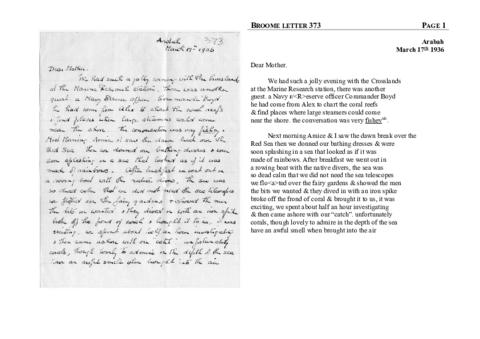 Arabah 373
March 17th 1936
Dear Mother.
We had such a jolly evening with the Crosslands
at the Marine Research Station, there was another
guest a Navy Reserve officer Commander Boyd
he had come from Alex to chart the coral reefs
& find places where large steamers could come
near the shore. the conversation was very fishey.
Next Morning Amice & I saw the dawn break over the
Red Sea then we donned our bathing dresses & were
soon splashing in a sea that looked as if it was
made of rainbows. After breakfast we went out in
a rowing boat with the native divers, the sea was
so dead calm that we did not need the sea telescopes
we floated over the fairy gardens & showed the men
the bits we wanted & they dived in with an iron spike
broke off the frond of coral & brought it to us. it was
exciting, we spent about half an hour investigating
& then came ashore with our "catch". unfortunately
corals, though lovely to admire in the depth of the sea
have an awful smell when brought into the air
BROOME LETTER 373 PAGE 1
Arabah
March 17th 1936
Dear Mother,
We had such a jolly evening with the Crosslands
at the Marine Research station, there was another
guest a Navy r<R>eserve officer Commander Boyd
he had come from Alex to chart the coral reefs
& find places where large steamers could come
near the shore. the conversation was very fishey
Next morning Amice & I saw the dawn break over the
Red Sea then we donned our bathing dresses & were
soon splashing in a sea that looked as if it was
made of rainbows. After breakfast we went out in
a rowing boat with the native divers, the sea was
so dead calm that we did not need the sea telescopes
we flo<a>ted over the fairy gardens & showed the men
the bits we wanted & they dived in with an iron spike
broke off the frond of coral & brought it to us, it was
exciting, we spent about half an hour investigating
& then came ashore with our "catch". unfortunately
corals, though lovely to admire in the depth of the sea
have an awful smell when brought into the air